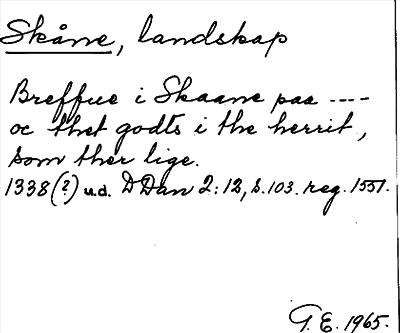 Skåne, landskap
Breffue i Skaane paa ----
oc thet godts i the herrit,
som ther lige.
1338(?) u.d. D Dan 2:12, s.103. reg. 1551.
G.E. 1965.